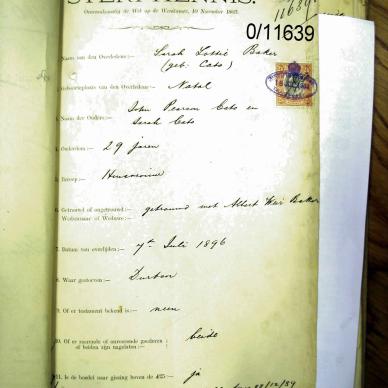 STERFKENNIS.
Overeenkomstig de Wet op de Weeskamer, 10 November 1862.
11639
0/11639
1. Naam van den Overledene:— Sarah Lottie Baker
(geb. Cato)
2. Geboorteplaats van den Overledene:— Natal
3. Namen der Ouders:— John Pearson Cato en
Sarah Cato
4. Ouderdom:— 29 jaren
5. Beroep:— Huisvrouw
6. Getrouwd of ongetrouwd:— getrouwd met Albert Weir Baker
Weduwnaar of Weduwe:—
7. Datum van overlijden:— 7de Juli 1896
8. Waar gestorven:— Durban
9. Of er testament bekend is:— neen
10. Of er roerende of onroerende goederen
of beiden zijn nagelaten:— beide
11. Is de boedel naar gissing boven de £25:— ja